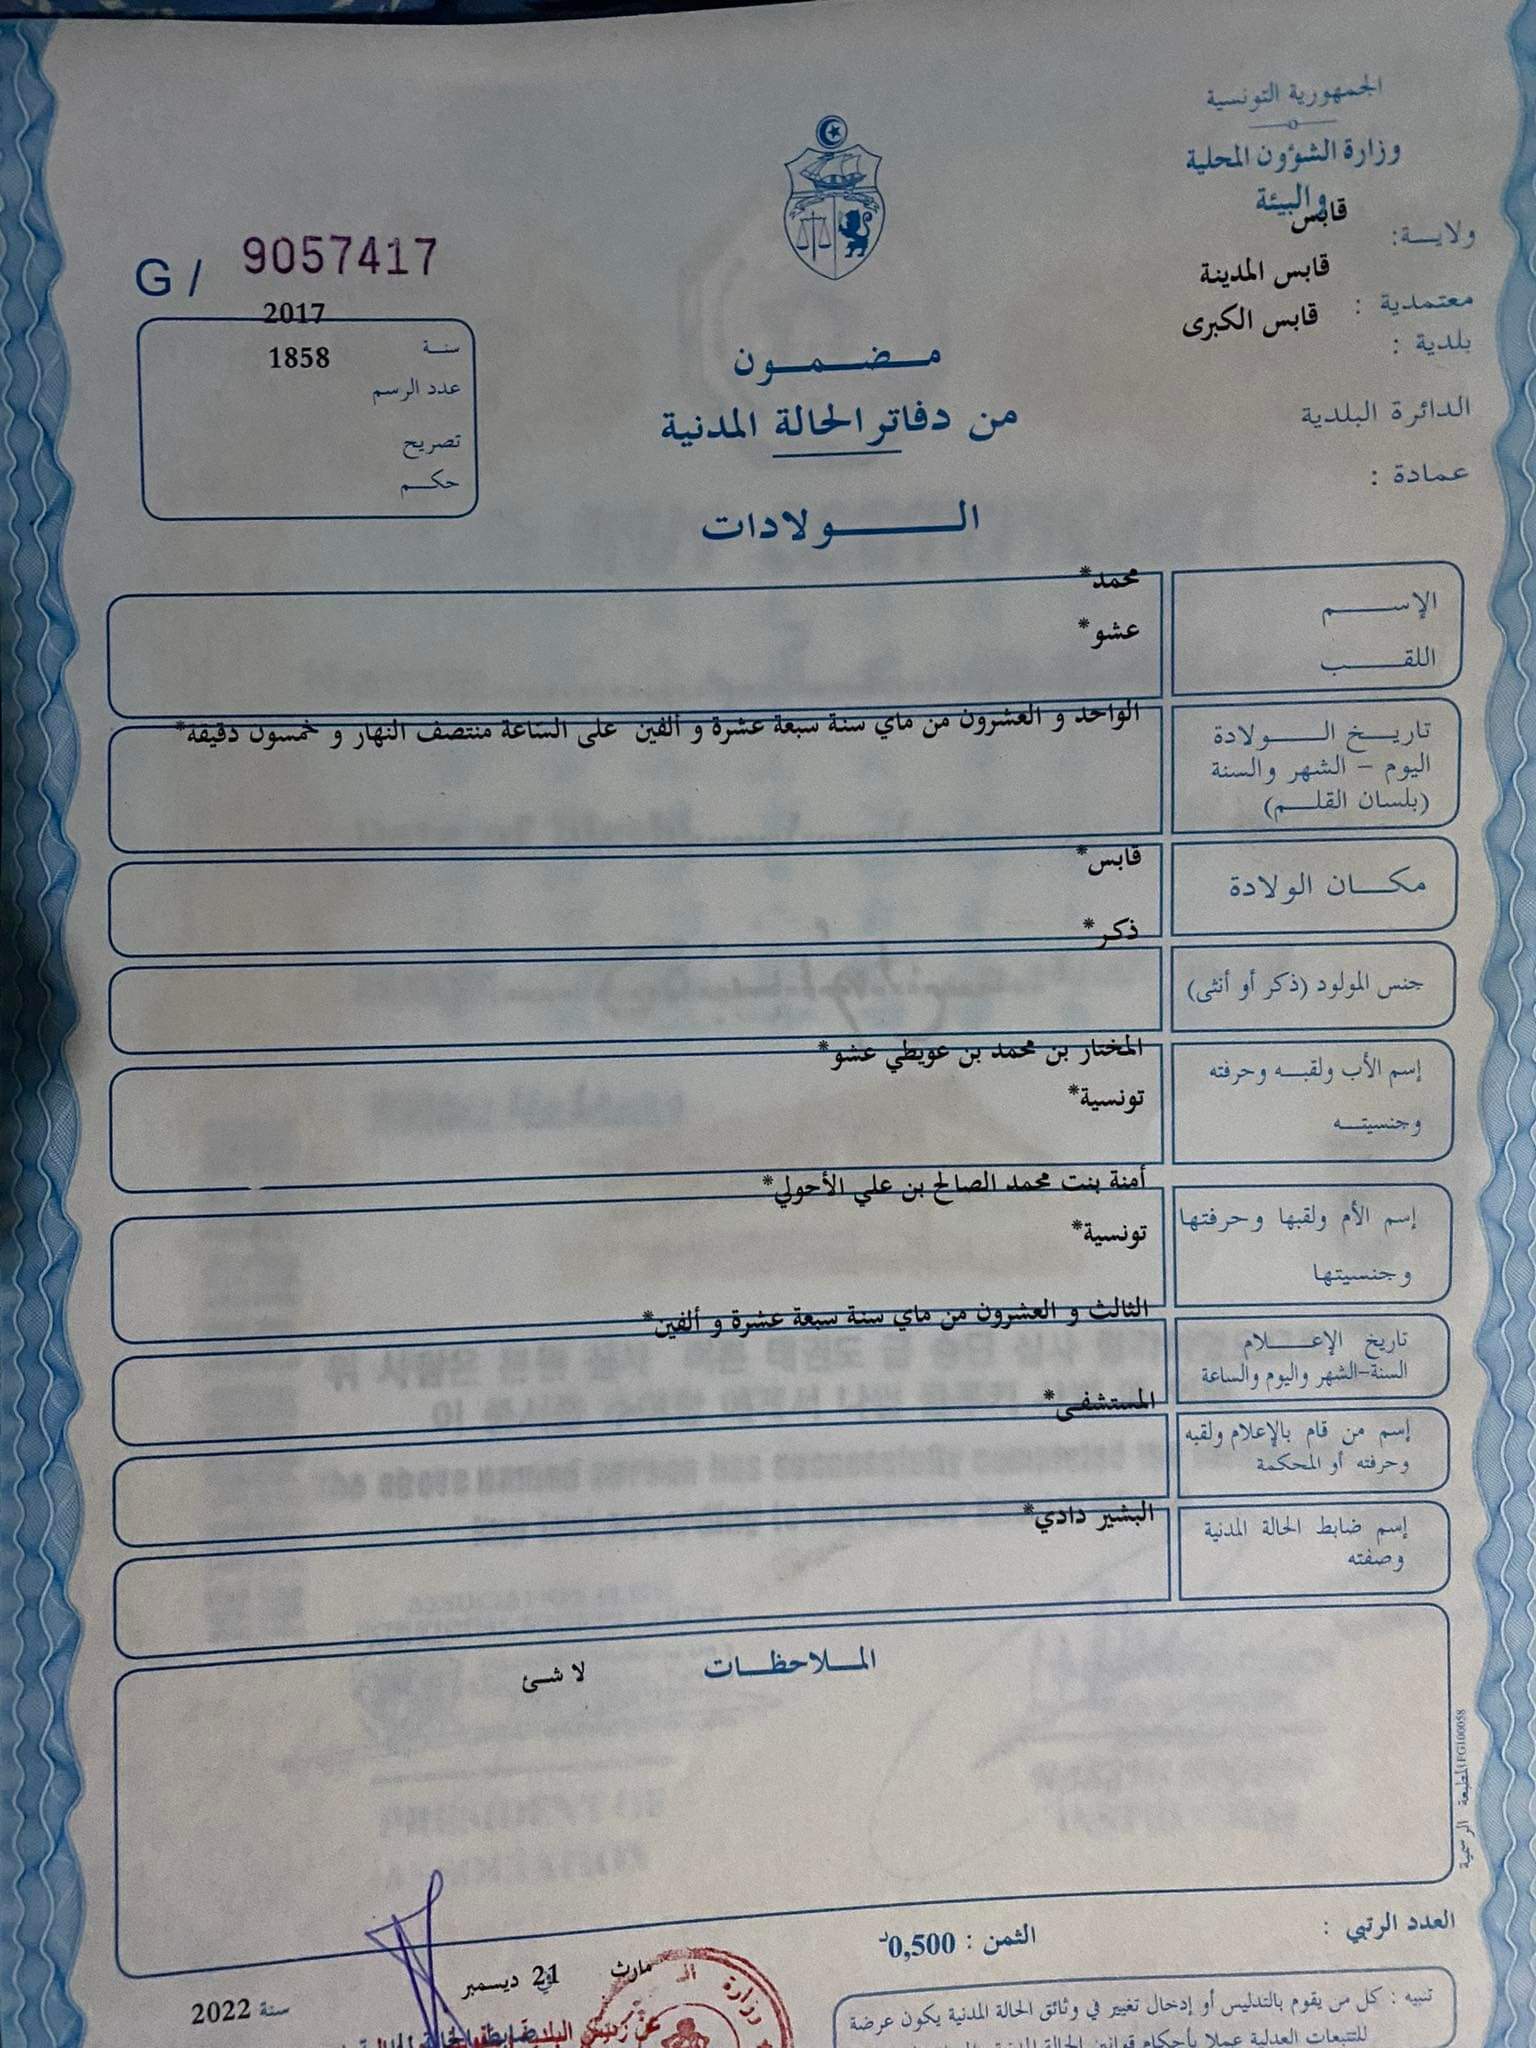 الجمهورية التونسية
وزارة الشؤون المحلية
والبيئة
ولايـــة: قابس
معتمدية : قابس المدينة
بلدية : قابس الكبرى
الدائرة البلدية
عمادة :
G / 9057417
سنـة 2017
عدد الرسم 1858
تصريح
حكـم
مـضـمـون
من دفاتر الحالة المدنية
الـــولادات
الإســـم محمد*
اللقـــب عشو*
تاريـخ الـــولادة
اليوم - الشهر والسنة
(بلسان القلـم)
الواحد و العشرون من ماي سنة سبعة عشرة و ألفين على الساعة منتصف النهار و خمسون دقيقة*
مكـــان الولادة قابس*
جنس المولود (ذكر أو أنثى) ذكر*
إسم الأب ولقبـه وحرفته المختار بن محمد بن عويطي عشو*
وجنسيتـــه تونسية*
إسم الأم ولقبها وحرفتها أمنة بنت محمد الصالح بن علي الأحولي*
وجنسيتها تونسية*
تاريخ الإعـــلام الثالث و العشرون من ماي سنة سبعة عشرة و ألفين*
السنة-الشهر واليوم والساعة
إسم من قام بالإعلام ولقبه المستشفى*
وحرفته أو المحكمة
إسم ضابط الحالة المدنية البشير دادي*
وصفته
المـلاحظـات
لا شئ
المطبعة الرسمية FG100058
العدد الرتبي :
الثمن : 0,500د
مارث في 21 ديسمبر سنة 2022
تنبيه : كل من يقوم بالتدليس أو إدخال تغيير في وثائق الحالة المدنية يكون عرضة
للتتبعات العدلية عملا بأحكام قوانين الحالة المدنية
وزارة
عن رئيس